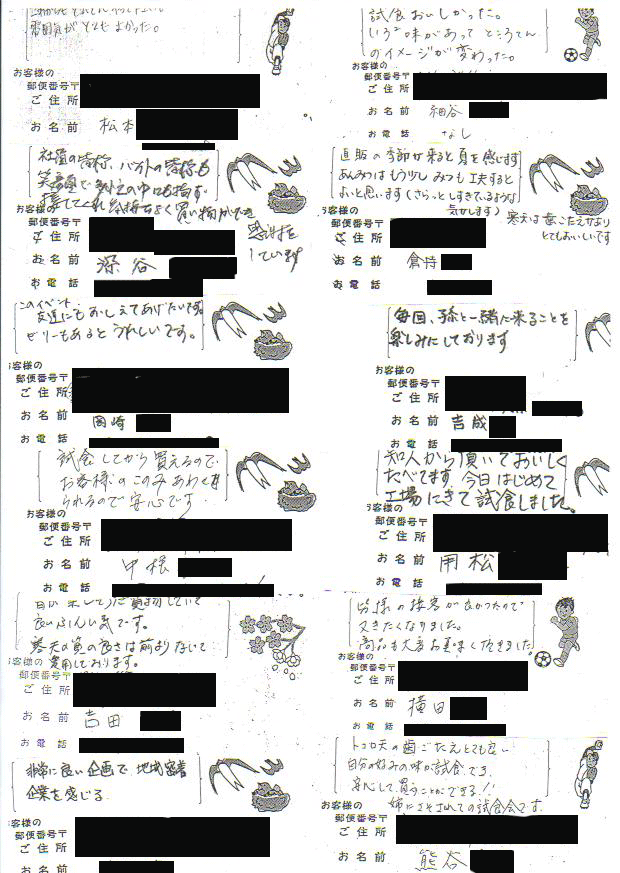 雰囲気がとてもよかった。
お客様の
郵便番号〒
ご住所
お名前 松本
社員の皆様、バイトの皆様も
笑顔で
買い物ができ
感謝を
しています
お客様の
郵便番号〒
ご住所
お名前 深谷
お電話
このイベント、
友達にもおしえてあげたいです。
ゼリーもあるとうれしいです。
お客様の
郵便番号〒
ご住所
お名前 岡崎
お電話
試食してから買えるので
お客様のこのみあわせ
られるので安心です。
お客様の
郵便番号〒
ご住所
お名前 中根
お電話
良いふんい気です。
寒天の質の良さは前より
愛用しております。
お客様の
郵便番号〒
ご住所
お名前 吉田
お電話
非常に良い企画で、地域密着
企業を感じる
お客様の
郵便番号〒
ご住所
試食おいしかった。
いろいろ味があって ところてん
のイメージが変わった。
お客様の
郵便番号〒
ご住所
お名前 細谷
お電話 なし
直販の季節が来ると夏を感じます
あんみつはもう少しみつも工夫すると
よいと思います(さらっとしすぎているような
気がします)
寒天は歯ごたえがあり
とてもおいしいです
お客様の
郵便番号〒
ご住所
お名前 倉持
お電話
毎回、子供と一緒に来ることを
楽しみにしております
お客様の
郵便番号〒
ご住所
お名前 吉成
お電話
知人から頂いておいしく
たべてます。今日はじめて
工場にきて試食しました。
お客様の
郵便番号〒
ご住所
お名前 用松
お電話
皆様の接客が良かったので
又きたくなりました。
商品も大変お美味しく頂きました
お客様の
郵便番号〒
ご住所
お名前 横田
お電話
トコロ天の歯ごたえとても良い
自分の好みの味が試食でき、
安心して買うことができる!!
姉にさそわれての試食会です。
お客様の
郵便番号〒
ご住所
お名前 熊谷